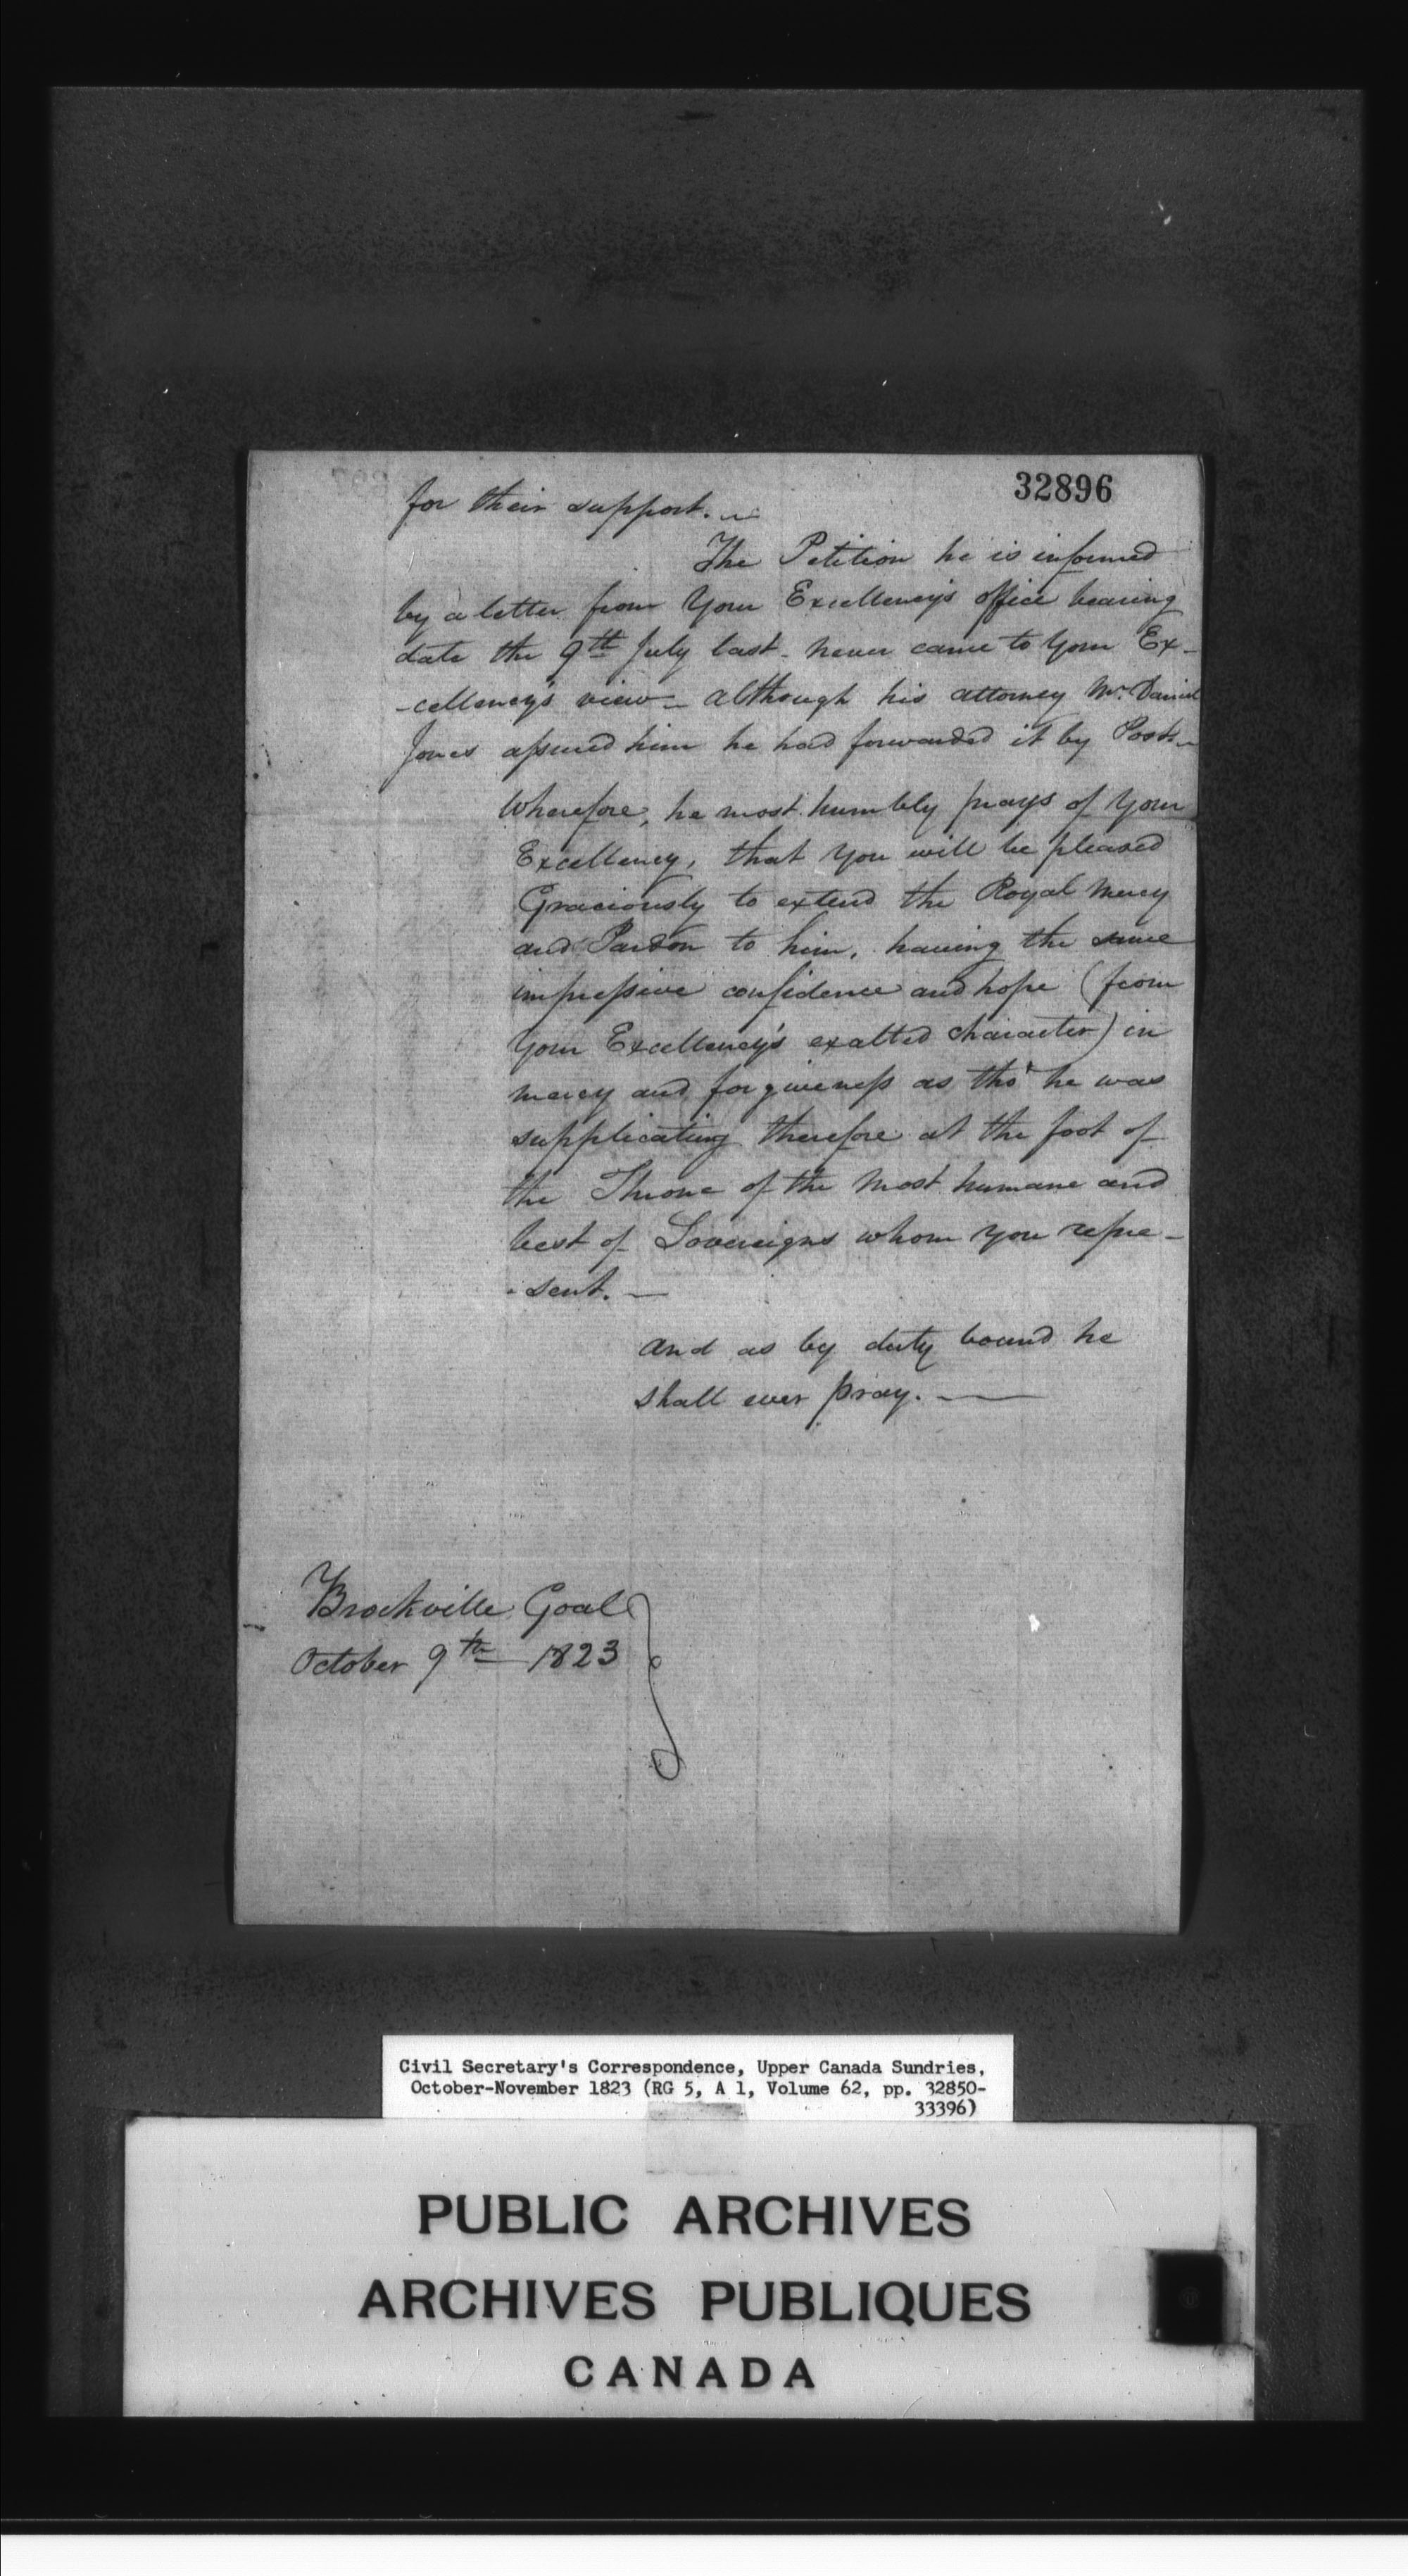 32896
for their support. —
The Petition he is informed
by a letter from Your Excellency's office bearing
date the 9th July last - never came to Your Ex-
-cellency's view - although his attorney Mr. Daniel
Jones assured him he had forwarded it by Post. —
Wherefore, he most humbly prays of Your
Excellency, that you will be pleased
Graciously to extend the Royal Mercy
and Pardon to him, having the same
impressive confidence and hope (from
Your Excellency's exalted character) in
mercy and forgiveness as tho' he was
supplicating therefore at the foot of
the Throne of the most humane and
best of Sovereigns whom you repre-
-sent. —
And as by duty bound he
shall ever pray. —
Brockville Goal
October 9th 1823
Civil Secretary's Correspondence, Upper Canada Sundries,
October-November 1823 (RG 5, A 1, Volume 62, pp. 32850-
33396)
PUBLIC ARCHIVES
ARCHIVES PUBLIQUES
CANADA